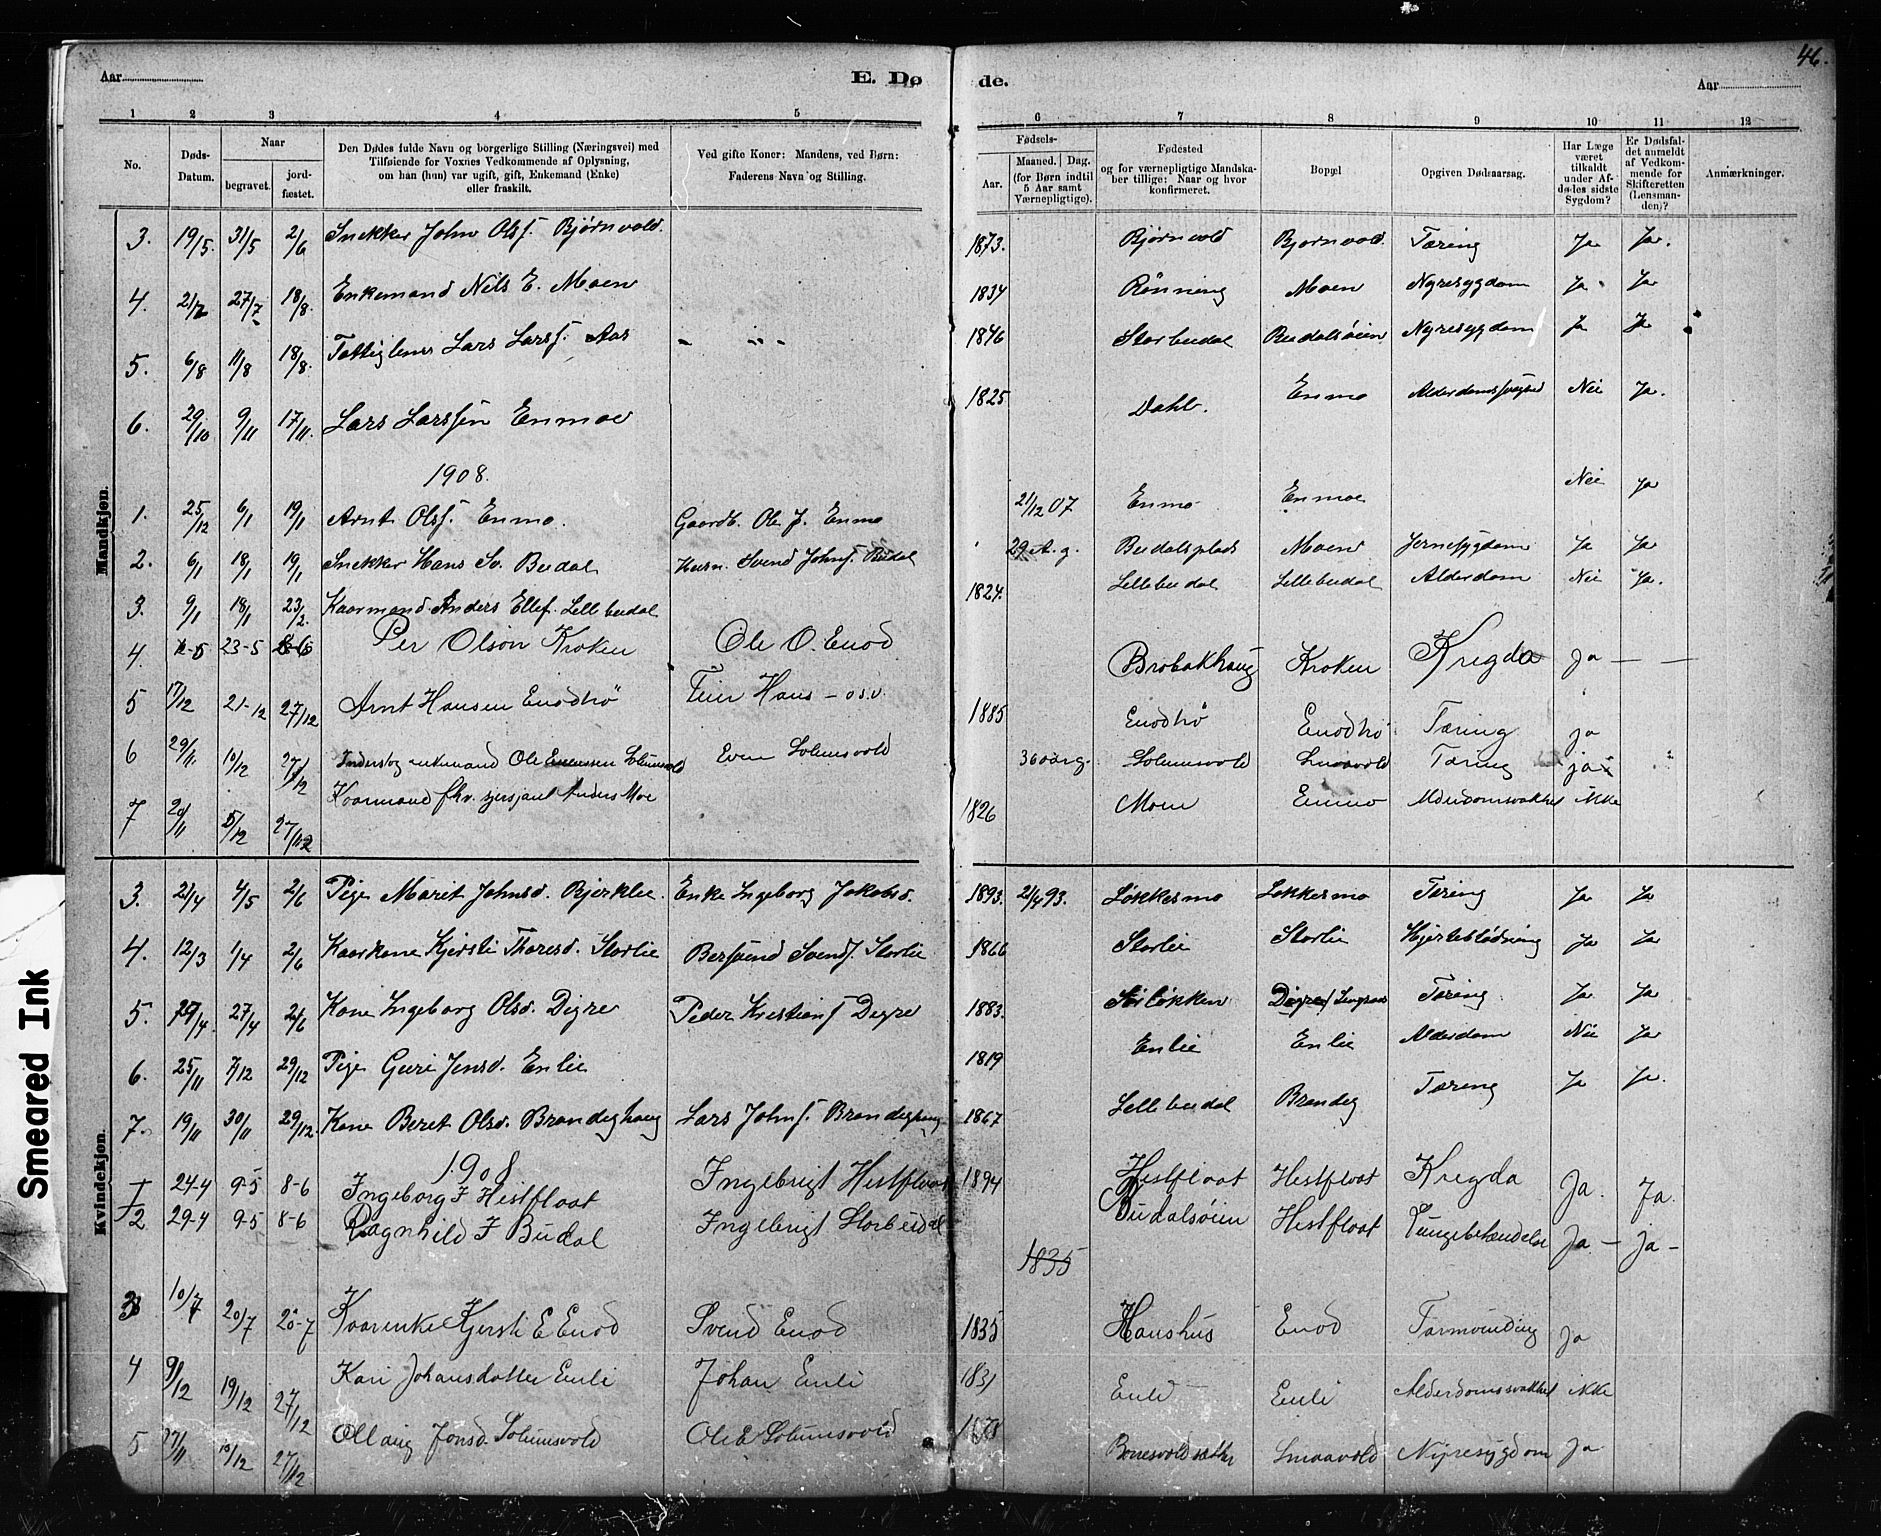 46.
Aar
E. Dø
de.
Aar
1 2 3 4 5 6 7 8 9 10 11 12
No.
Døds-Datum.
Naar
begravet.
jord-fæstet.
Den Dødes fulde Navn og borgerlige Stilling (Næringsvei) med
Tilføiende for Voxnes Vedkommende af Oplysning,
om han (hun) var ugift, gift, Enkemand (Enke)
eller fraskilt.
Ved gifte Koner: Mandens, ved Børn:
Faderens Navn og Stilling.
Fødsels-
Aar.
Maaned. Dag.
(for Børn indtil
5 Aar samt
Værnepligtige).
Fødested
og for værnepligtige Mandska-
ber tillige: Naar og hvor
konfirmeret.
Bopæl
Opgiven Dødsaarsag.
Har Læge
været
tilkaldt
under Af-
dødes sidste
Sygdom?
Er Dødsfal-
det anmeldt
af Vedkom-
mende for
Skifteretten
(Lensman-
den)?
Anmærkninger.
Mandkjøn.
3. 19/5. 31/5 2/6 Snekker John Olsf. Bjørnvold. 1873. Bjørnvold Bjørnvold. Tæring Ja Ja.
4. 27/7 18/8. Enkemand Nils E. Moen 1834 Rønning Moen Nyresygdom Ja Ja
5. 6/8 11/8 18/8. Lars Larsf. Aas 1846 Storbudal Budalsøien Nyresygdom Ja Ja
6. 29/10 9/11 17/11. Lars Larssen Enmoe 1825 Dahl. Enmo Nei Ja.
1908.
1. 25/12 6/1 19/1 Arnt Olsf. Enmo. Gaardb. Ole J. Enmo 21/12 07 Enmo Enmoe Nei Ja
2. 6/1 18/1 19/1 Snekker Hans Sv. Budal Svend Johnf. Budal 29 A. g. Budalsplads Moen Ja Ja
3. 9/1 18/1 23/2. Kaarmand Anders Ellef. Lillebudal 1824. Lillebudal Lillebudal Alderdom Nei Ja.
4. 23-5 Per Olson Kroken Ole O. Enod Brobakhaug Kroken Kregda Ja — —
5 17/12 21-12 27/12 Arnt Hansen Enodhø Hans 1885 Enodhø Enodhø Tæring ja
6 29/11 10/12 27/12 enkemand Ole Evensen Solemsvold Even Solemsvold 36 aarg. Solemsvold Smaavold Tæring ja
7 20/11 5/12 27/12 Kaarmand fhv. sersjant Anders Moe 1826 Moen Enmo Alderdomsvakhet ikke
Kvindekjøn.
3. 21/4 4/5 2/6 Pige Marit Johnsd. Bjerklie. Enke Ingeborg Jakobsd. 1893. 21/4 93. Løkkesmo Løkkesmo Tæring Ja Ja
4. 12/3 1/4 2/6 Kaarkone Kjersti Thoresd. Storlie Bersvend Svendf. Storlie 1866 Storlie Storlie Hjerteblødning Ja Ja
5. 27/4 2/6 Kone Ingeborg Olsd. Digre Peder Kristianf Digre 1883. Digre Tæring Ja Ja
6. 25/11 7/12 29/12 Pige Guri Jensd. Enlie 1819 Enlie Enlie Alderdom Nei Ja
7. 19/11 30/11 29/12. Kone Beret Olsd. Brandeghaug Lars Johnf. Brandeghaug 1867 Lillebudal Brandeg Tæring Ja Ja.
1908
1 24-4 9-5 8-6 Ingeborg I Hestfloat Ingebrigt Hestfloat 1894 Hestfloat Hestfloat Kregda Ja. Ja.
2 29-4 9-5 8-6 Ragnhild I Budal Ingebrigt Storbudal Budalsøien Hestfloat Lungebetændelse Ja — Ja —
1835
3 10/7 20/7 20-7 Kaarenke Kjersti E Enod Svend Enod 1835 Haushus Enod Ja
4 9/12 19/12 27/12 Kari Johansdatter Enli Johan Enli 1831 Enli Enli Alderdomssvakhet ikke
5 27/11 10/12 27/12 Ollaug Jonsd. Solemsvold Ole E Solemsvold Smaavold Nyresygdom Ja
Smeared Ink